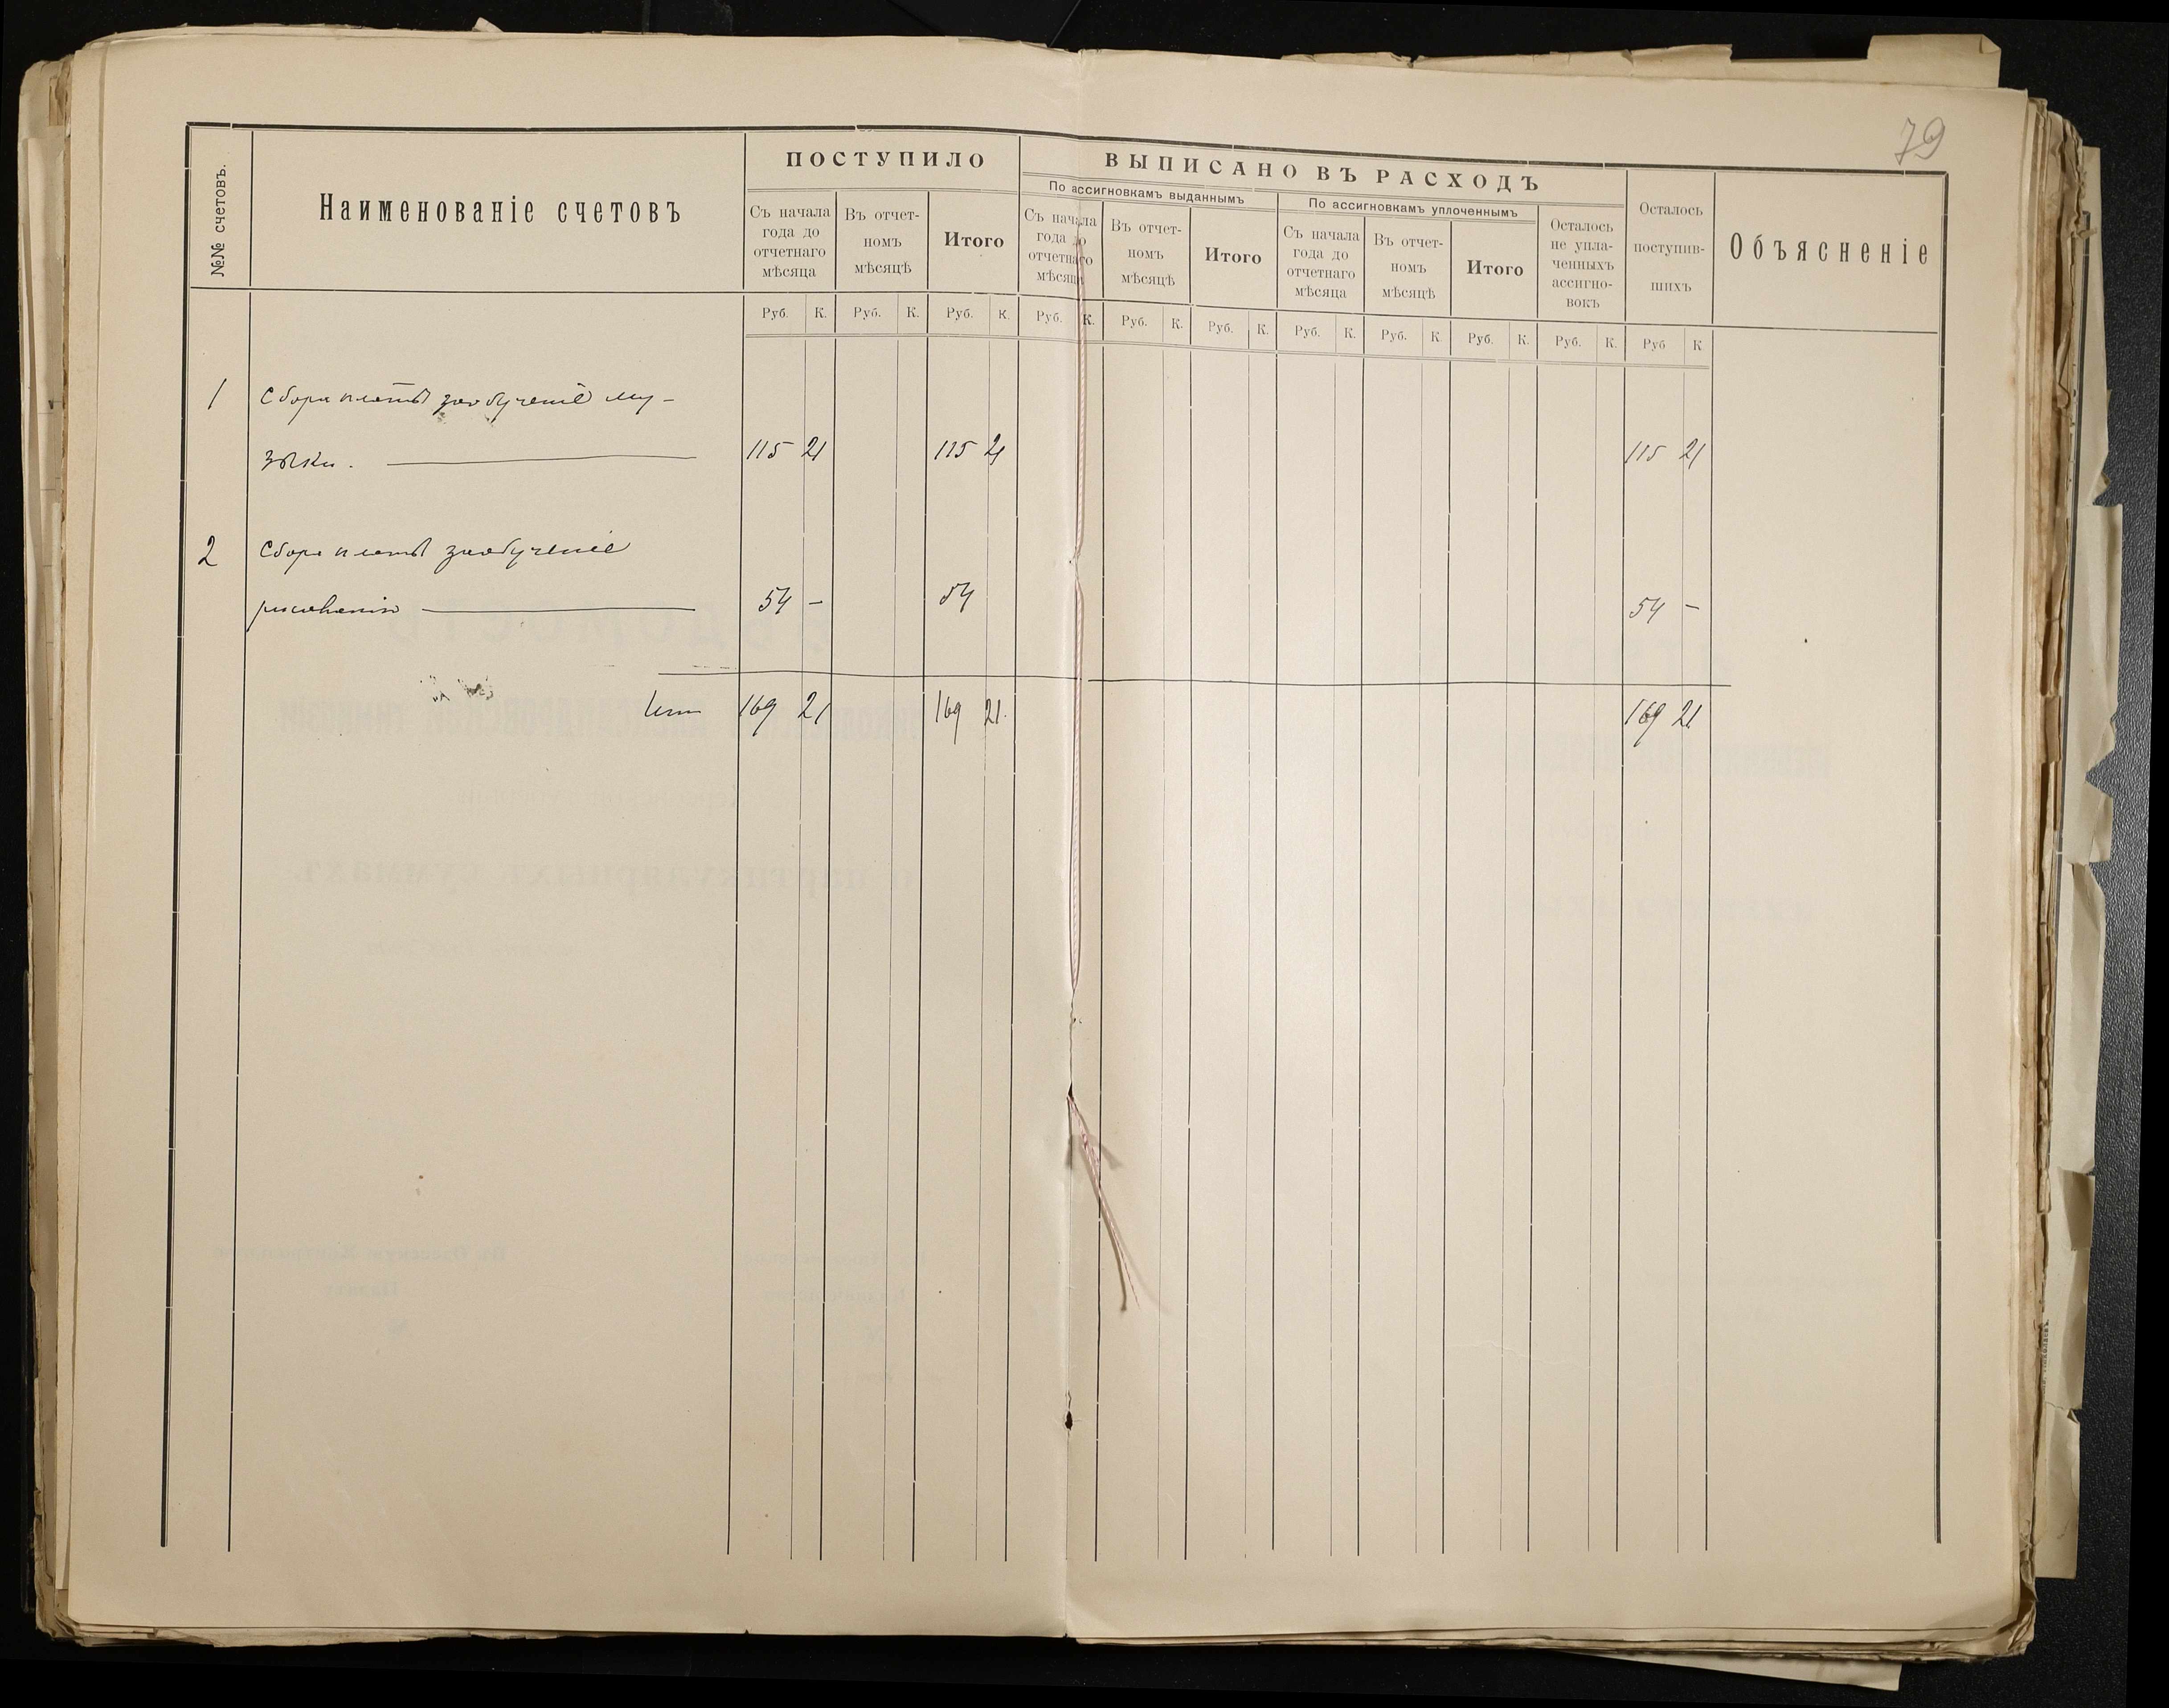 79
№№ счетовъ.
Наименованіе счетовъ
ПОСТУПИЛО
ВЫПИСАНО ВЪ РАСХОДЪ
По ассигновкамъ выданнымъ
По ассигновкамъ уплоченнымъ
Съ начала года до отчетнаго мѣсяца
Въ отчетномъ мѣсяцѣ
Итого
Съ начала года до отчетнаго мѣсяца
Въ отчетномъ мѣсяцѣ
Итого
Съ начала года до отчетнаго мѣсяца
Въ отчетномъ мѣсяцѣ
Итого
Осталось не уплаченныхъ ассигновокъ
Осталось поступившихъ
Объясненіе
Руб. К. Руб. К. Руб. К. Руб. К. Руб. К. Руб. К. Руб. К. Руб. К Руб. К. Руб. К. Руб К
1 Сбора платы за обученіе му-
зыки. 115 21 115 21 115 21
2 Сбора платы за обученіе
рисованію 54 - 54 54 -
Итого 169 21 169 21. 169 21